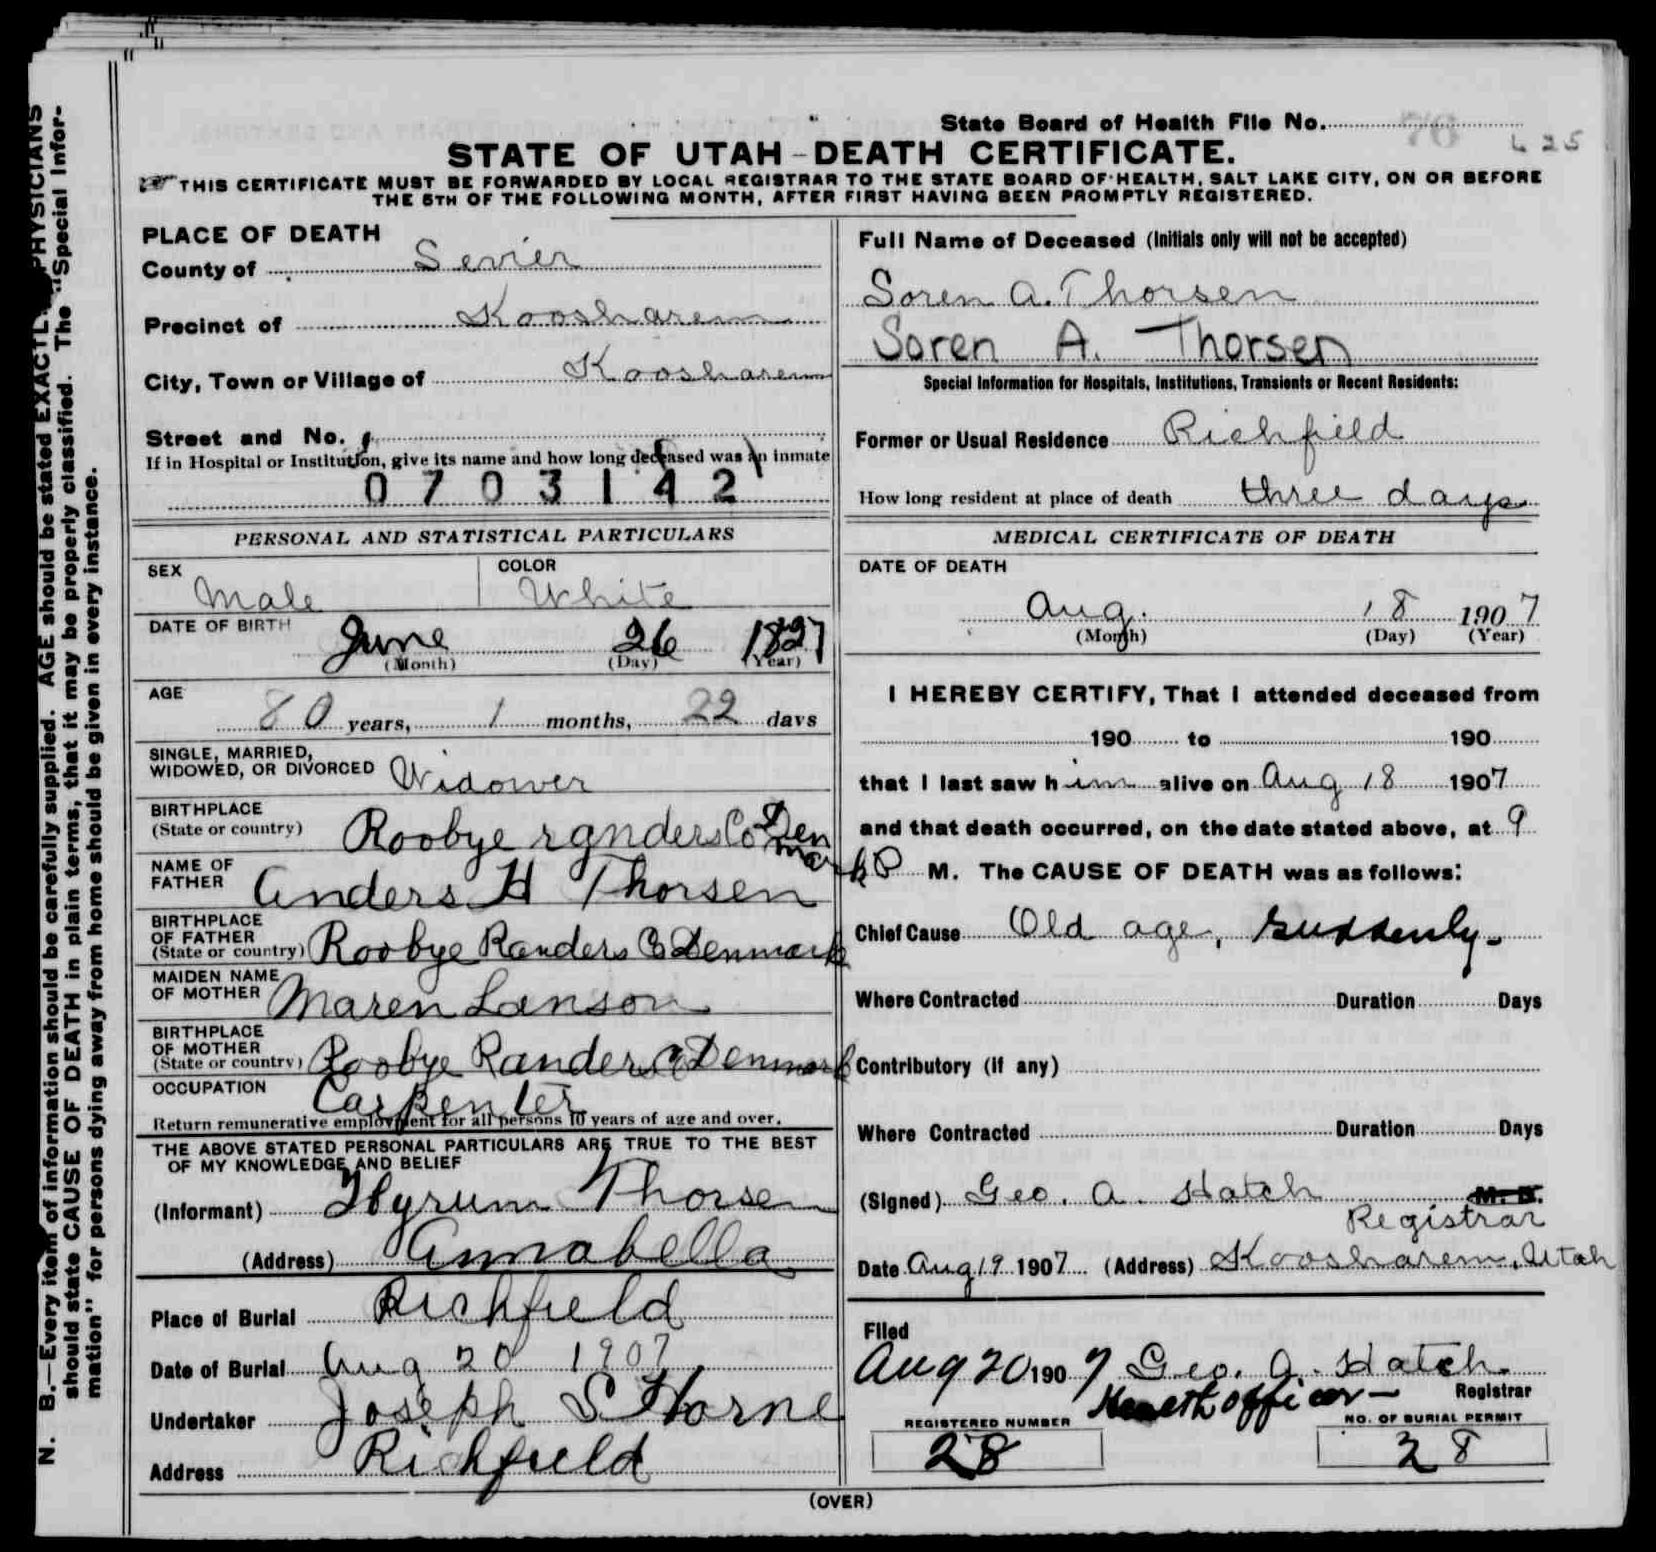 State Board of Health File No. 76 425
STATE OF UTAH-DEATH CERTIFICATE.
THIS CERTIFICATE MUST BE FORWARDED BY LOCAL REGISTRAR TO THE STATE BOARD OF HEALTH, SALT LAKE CITY, ON OR BEFORE
THE 5TH OF THE FOLLOWING MONTH, AFTER FIRST HAVING BEEN PROMPTLY REGISTERED.
PLACE OF DEATH
County of Sevier
Precinct of Koosharem
City, Town or Village of Koosharem
Street and No.
If in Hospital or Institution, give its name and how long deceased was an inmate
0703142
PERSONAL AND STATISTICAL PARTICULARS
SEX Male COLOR White
DATE OF BIRTH June 26 1827
(Month) (Day) (Year)
AGE 80 years, 1 months, 22 days
SINGLE, MARRIED,
WIDOWED, OR DIVORCED Widower
BIRTHPLACE
(State or country) Roobye randers Co Denmark
NAME OF
FATHER Anders H Thorsen
BIRTHPLACE
OF FATHER
(State or country) Roobye Randers Co Denmark
MAIDEN NAME
OF MOTHER Maren Lanson
BIRTHPLACE
OF MOTHER
(State or country) Roobye Randers Co Denmark
OCCUPATION Carpenter
Return remunerative employment for all persons 10 years of age and over.
THE ABOVE STATED PERSONAL PARTICULARS ARE TRUE TO THE BEST
OF MY KNOWLEDGE AND BELIEF
(Informant) Hyrum Thorsen
(Address) Annabella
Place of Burial Richfield
Date of Burial Aug 20 1907
Undertaker Joseph S Horne
Address Richfield
Full Name of Deceased (Initials only will not be accepted)
Soren A. Thorsen
Soren A. Thorsen
Special Information for Hospitals, Institutions, Transients or Recent Residents:
Former or Usual Residence Richfield
How long resident at place of death three days
MEDICAL CERTIFICATE OF DEATH
DATE OF DEATH
Aug. 18 1907
(Month) (Day) (Year)
I HEREBY CERTIFY, That I attended deceased from
190 to 190
that I last saw him alive on Aug 18 1907
and that death occurred, on the date stated above, at 9
P M. The CAUSE OF DEATH was as follows:
Chief Cause Old age, suddenly-
Where Contracted Duration Days
Contributory (if any)
Where Contracted Duration Days
(Signed) Geo. A. Hatch M. D.
Registrar
Date Aug 19 1907 (Address) Koosharem, Utah
Filed
Aug 20 1907 Geo. A. Hatch
Health officer- Registrar
REGISTERED NUMBER NO. OF BURIAL PERMIT
28 28
(OVER)
N. B.—Every item of information should be carefully supplied. AGE should be stated EXACTLY. PHYSICIANS
should state CAUSE OF DEATH in plain terms, that it may be properly classified. The "Special Infor-
mation" for persons dying away from home should be given in every instance.